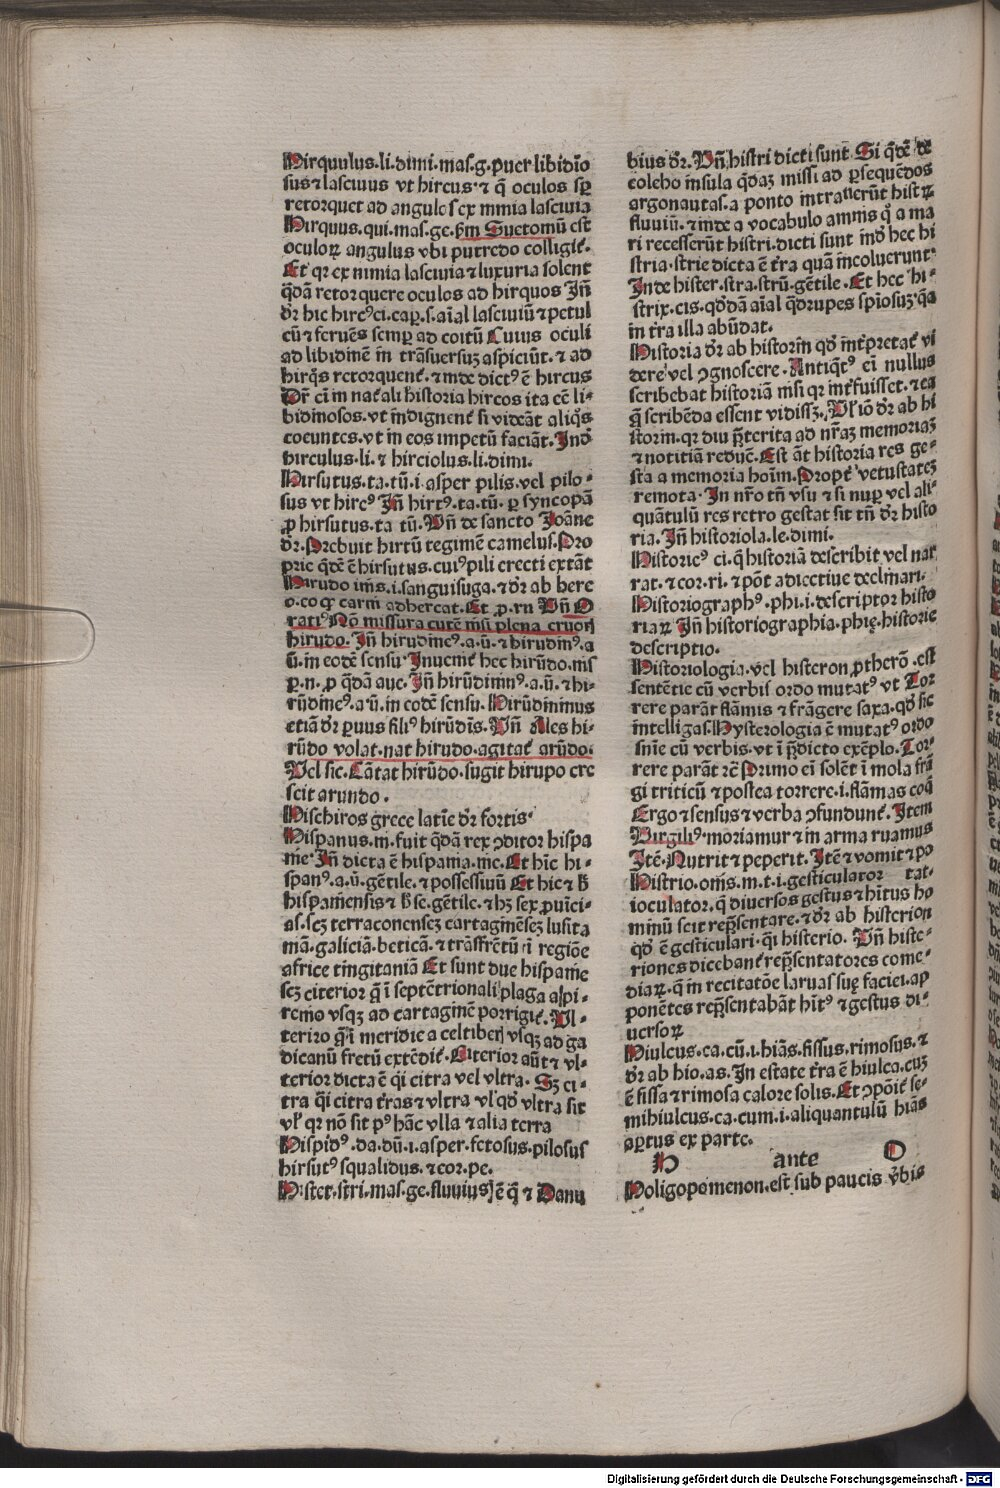 Hirquulus.li.dimi.mas.g.puer libidīo
sus ⁊ lasciuus vt hircus ⁊ q̄ oculos sꝑ
retorquet ad angulos ex nimia lasciuia
Hirquus.qui.mas.ge.ẜm Suetoniū est
oculoꝝ angulus vbi putredo colligit᷑.
Et qꝛ ex nimia lasciuia ⁊ luxuria solent
q̄dā retorquere oculos ad hirquos Iñ
dr̄ hic hircꝰ.ci.caꝑ.s.aīal lasciuiū ⁊ petul
cū ⁊ feruēs semꝑ ad coitū Cuius oculi
ad libidinē in trāsuersuꝫ aspiciūt. ⁊ ad
hirq̄s retorquent᷑. ⁊ inde dictꝰ ē hircus
Dr̄ eī in nat᷑ali historia hircos ita eē li-
bidinosos.vt indignent᷑ si videāt aliq̄s
coeuntes.vt in eos impetū faciāt. Ind̄
hirculus.li. ⁊ hirciolus.li.dimi.
Hirsutus.ta.tū.i asper pilis.vel pilo-
sus vt hircꝰ Iñ hirtꝰ.ta.tū. ꝑ syncopā
ꝓ hirsutus.ta tū. Vñ de sancto Ioāne
dr̄. Prebuit hirtū tegimē camelus. Pro
prie q̄dē ē hirsutus.cuiꝰ pili erecti extāt
Hirudo inis.i.sanguisuga. ⁊ dr̄ ab here
o.eo qꝙ carni adhereat. Et ꝓ.rn Vñ O
ratiꝰ Nō missura cutē nisi plena cruoris
hirudo. Iñ hirudineꝰ.a.ū. ⁊ hirudinꝰ.a
ū.in eodē sensu Inuenit᷑ hec hirūdo.inis
ꝑ.n. ꝓ q̄dā aue. Iñ hirūdininꝰ.a.ū. ⁊ hi-
rūdineꝰ.a ū.in eodē sensu. Hirūdininus
etiā dr̄ ꝑuus filiꝰ hirūdīs. Vñ Ales hi-
rūdo volat.nat hirudo.agitat᷑ arūdo.
Vel sic. Cātat hirūdo.sugit hirupo cre
scit arundo.
Hischiros grece latīe dr̄ fortis.
Hispanus.m.fuit q̄dā rex ꝯditor hispa
nie Iñ dicta ē hispania.nie. Et hīc hi-
spanꝰ.a.ū.gētile. ⁊ possessiuū Et hic ⁊ h̄
hispaniensis ⁊ h̄ se.gētile. ⁊ hꝫ sex ꝓuīci-
as.seꝫ terraconenseꝫ cartaginēseꝫ lusita
niā.galiciā.beticā. ⁊ trāsfretū ī regiōe
africe tingitaniā Et sunt due hispanie
seꝫ citerior q̄ ī septētrionali plaga a pi-
reneo vsqꝫ ad cartaginē porrigit᷑. Vl-
terior q̄ ī meridie a celtiberis vsqꝫ ad ga
dicanū fretū extēdit᷑. Citerior aūt ⁊ vl-
terior dicta ē q̄i citra vel vltra. Sꝫ ci-
tra q̄i citra t᷑ras ⁊ vltra vl̓ qd̓ vltra sit
vl̓ qꝛ nō sit pꝰ hāc vlla ⁊ alia terra
Hispidꝰ.da.dū.i.asper.setosus.pilosus
hirsutꝰ squalidus. ⁊ cor.pe.
Hister.stri.mas.ge.fluuius ē q̄ ⁊ Danu
bius dr̄. Vñ histri dicti sunt Si q̄dē de
colcho insula q̄daꝫ missi ad ꝑsequēdos
argonautas.a ponto intrauerūt histꝝ
fluuiū. ⁊ inde a vocabulo amnis qͦ a ma
ri recesserūt histri.dicti sunt ind̄ hec hi
stria.strie dicta ē t᷑ra quā incoluerunt
Inde hister.stra.strū.gētile. Et hec hi-
strix.cis.qd̄dā aīal q̄drupes spīosuꝫ.q̄a
in t᷑ra illa abūdat.
Historia dr̄ ab historin qd̓ int᷑pretat᷑ vi
dere vel ꝯgnoscere. Antiqͥtꝰ eī nullus
scribebat historiā nisi qꝛ int᷑fuisset. ⁊ ea
q̄ scribēda essent vidissꝫ. Vl̓ io dr̄ ab hi
storin.qꝛ diu p̄terita ad nr̄aꝫ memoriaꝫ
⁊ notitiā reducē. Est āt historia res ge-
sta a memoria hoīm. Propt᷑ vetustateꝫ
remota. In nr̄o tñ vsu ⁊ si nuꝑ vel ali-
quātulū res retro gestat sit tñ dr̄ histo
ria. Iñ historiola.le.dimi.
Historicꝰ ci.q̄ historiā describit vel nar
rat. ⁊ cor.ri. ⁊ pōt adiectiue declinari.
Historiographꝰ.phi.i.descriptor histo
riaꝝ Iñ historiographia.phię.historie
descriptio.
Historiologia.vel histeron ꝓtherō.est
sentētie cū verbis ordo mutatꝰ vt Tor
rere parāt flāmis ⁊ frāgere saxa.qd̓ sic
intelligas. Hysterologia ē mutatꝰ ordo
snīe cū verbis.vt ī p̄dicto exēplo. Tor-
rere parāt ⁊c̄ Primo eī solēt ī mola frā
gi triticū ⁊ postea torrere.i.flāmas coq̄
Ergo ⁊ sensus ⁊ verba ꝯfundunt᷑. Item
Virgiliꝰ.moriamur ⁊ in arma ruamus
Itē. Nutrit ⁊ peperit. Itē ⁊ vomit ⁊ po
Histrio.onis.m.t.i.gesticulator tat.
ioculator.q̄ diuersos gestus ⁊ hītus ho
minū scit rep̄sentare. ⁊ dr̄ ab histerion
qd̓ ē gesticulari.q̄i histerio. Vñ histe-
riones dicebant᷑ rep̄sentatores come-
diaꝝ.q̄ in recitatōe laruas suę faciei.ap
ponētes rep̄sentabāt hītꝰ ⁊ gestus di-
uersoꝝ
Hiulcus.ca.cū.i.hiās.fissus.rimosus. ⁊
dr̄ ab hio.as. In estate t᷑ra ē hiulca.cuꝫ
ē fissa ⁊ rimosa calore solis. Et ꝯpōit᷑ se-
mihiulcus.ca.cum.i.aliquantulū hiās
aꝑtus ex parte.
H ante O
Holigopomenon.est sub paucis v̓bis
Digitalisierung gefördert durch die Deutsche Forschungsgemeinschaft - DFG